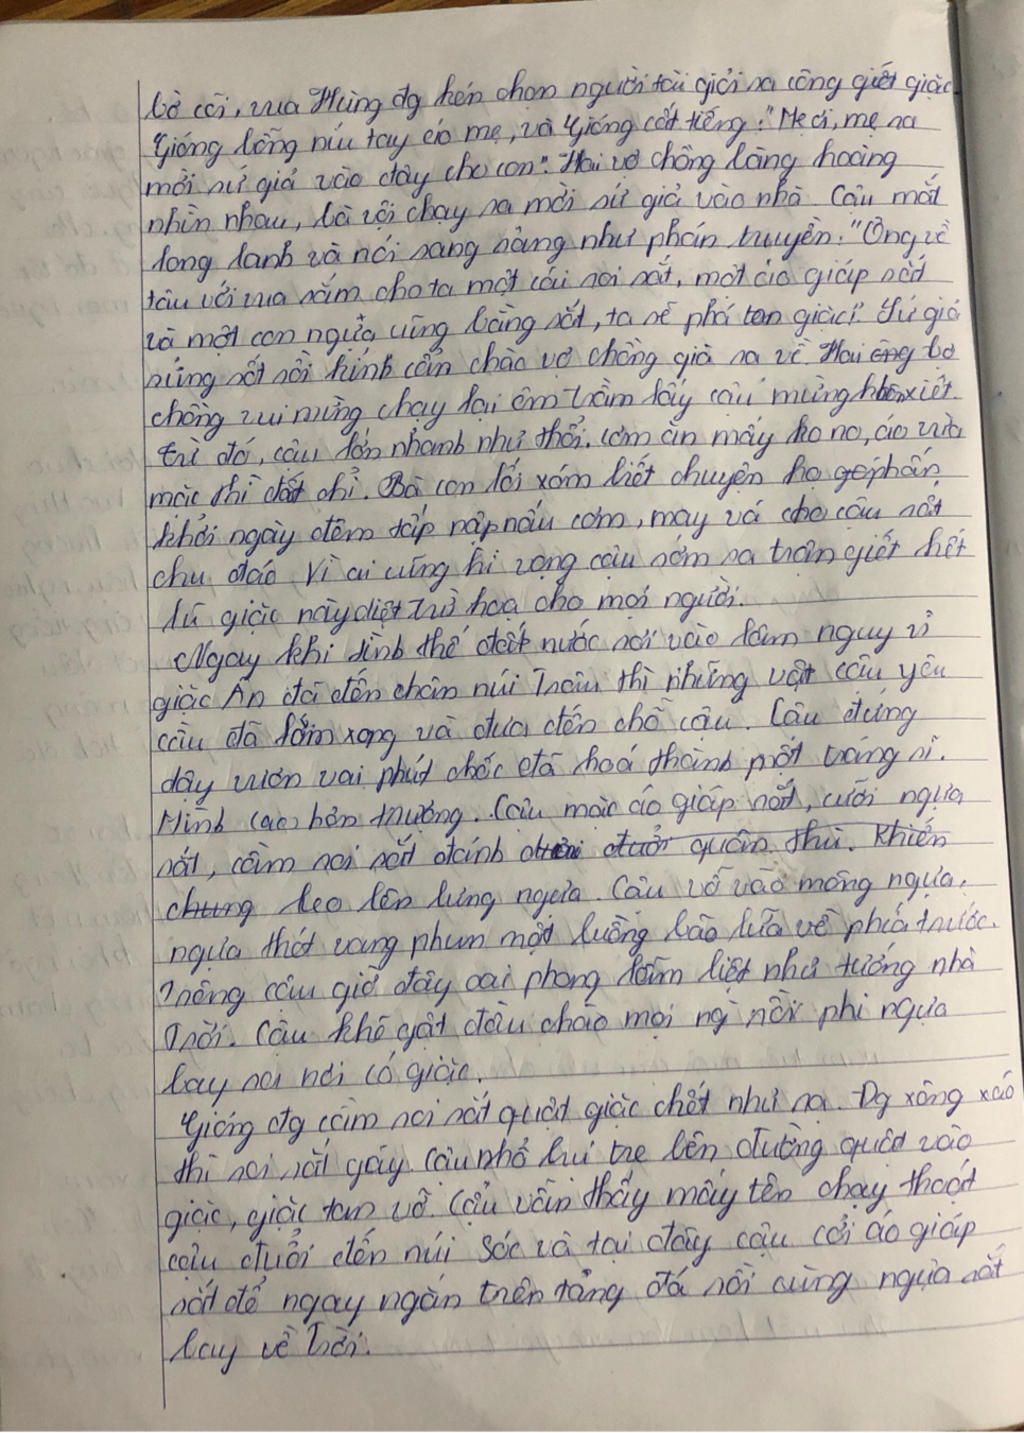 bờ cõi, vua Hùng đg kén chọn người tài giỏi ra công giết giặc.
Gióng bỗng níu tay áo mẹ, và Gióng cất tiếng: "Mẹ ơi, mẹ ra
mời sứ giả vào đây cho con". Hai vợ chồng bàng hoàng
nhìn nhau, bà vội chạy ra mời sứ giả vào nhà. Cậu mắt
long lanh và nói sang sảng như phán truyền: "Ông về
tâu với vua sắm cho ta một cái roi sắt, một áo giáp sắt
và một con ngựa cũng bằng sắt, ta sẽ phá tan giặc!". Sứ giả
sửng sốt rồi kính cẩn chào vợ chồng già ra về. Hai ông bà
chồng vui mừng chạy lại ôm trầm lấy cậu mừng khôn xiết.
Từ đó, cậu lớn nhanh như thổi. Cơm ăn mấy ko no, áo vừa
mặc thì đứt chỉ. Bà con lối xóm biết chuyện họ góp phấn
khởi ngày đêm tấp nập nấu cơm, may vá cho cậu rất
chu đáo. Vì ai cũng hi vọng cậu sớm ra trận giết hết
lũ giặc này diệt trừ hoạ cho mọi người.
Ngay khi tình thế đất nước rơi vào lâm nguy vì
giặc Ân đã đến chân núi Trâu thì những vật cậu yêu
cầu đã làm xong và đưa đến chỗ cậu. Cậu đứng
dậy vươn vai phút chốc đã hoá thành một tráng sĩ.
Mình cao hơn trượng. Cậu mặc áo giáp sắt, cưỡi ngựa
sắt, cầm roi sắt đánh đuổi quân thù. Khiến
chung leo lên lưng ngựa. Cậu vỗ vào mông ngựa,
ngựa thét vang phun một luồng bão lửa về phía trước.
Trông cậu giờ đây oai phong lẫm liệt như tướng nhà
Trời. Cậu khẽ gật đầu chào mọi ng rồi phi ngựa
bay ra nơi có giặc.
Gióng đg cầm roi sắt quật giặc chết như rạ. Đg xông xáo
thì roi sắt gãy. Cậu nhổ bụi tre bên đường quật vào
giặc, giặc tan vỡ. Cậu vẫn thấy mấy tên chạy thoát
cậu đuổi đến núi Sóc và tại đây cậu cởi áo giáp
sắt để ngay ngắn trên tảng đá rồi cùng ngựa sắt
bay về trời.